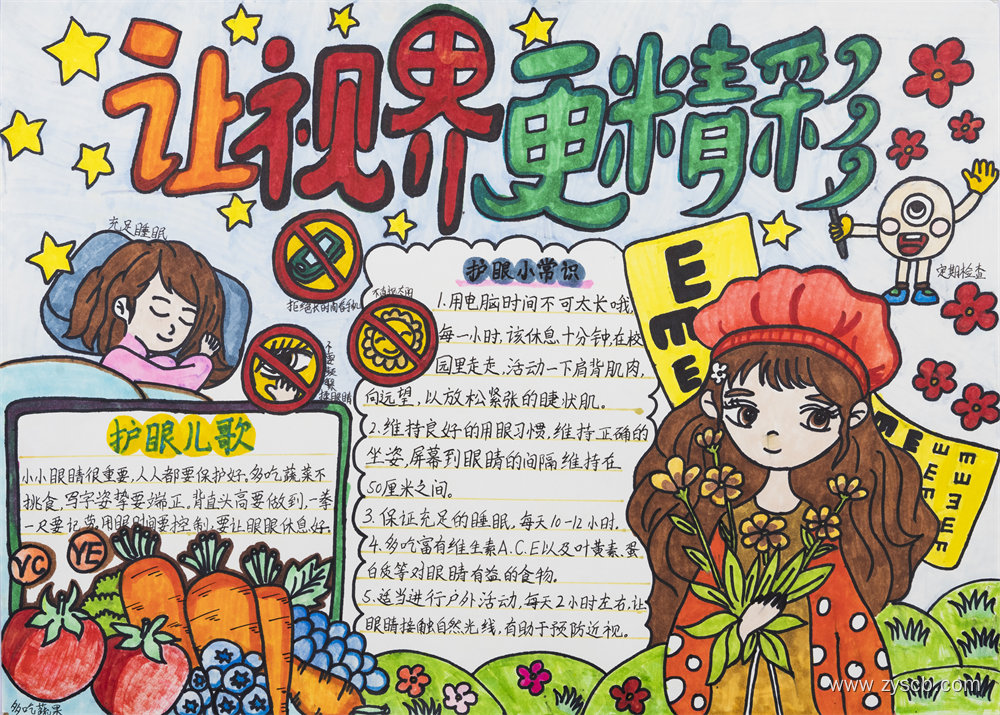 让视界更精彩
充足睡眠
定期检查
护眼小常识
1.用电脑时间不可太长哦,
每一小时,该休息十分钟,在校
园里走走,活动一下肩背肌肉,
向远望,以放松紧张的睫状肌。
2.维持良好的用眼习惯,维持正确的
坐姿,屏幕到眼睛的间隔维持在
50厘米之间。
3.保证充足的睡眠,每天10-12小时.
4.多吃富有维生素A.C.E以及叶黄素.蛋
白质等对眼睛有益的食物。
5.适当进行户外活动,每天2小时左右,让
眼睛接触自然光线,有助于预防近视。
E
m
E
护眼儿歌
小小眼睛很重要,人人都要保护好.多吃蔬菜不
挑食,写字姿挚要端正.背直头高要做到,一拳
一尺要记 用眼时间要控制,要让眼眼休息好.
VC
VE
多吃蔬果
www.zyscb.com